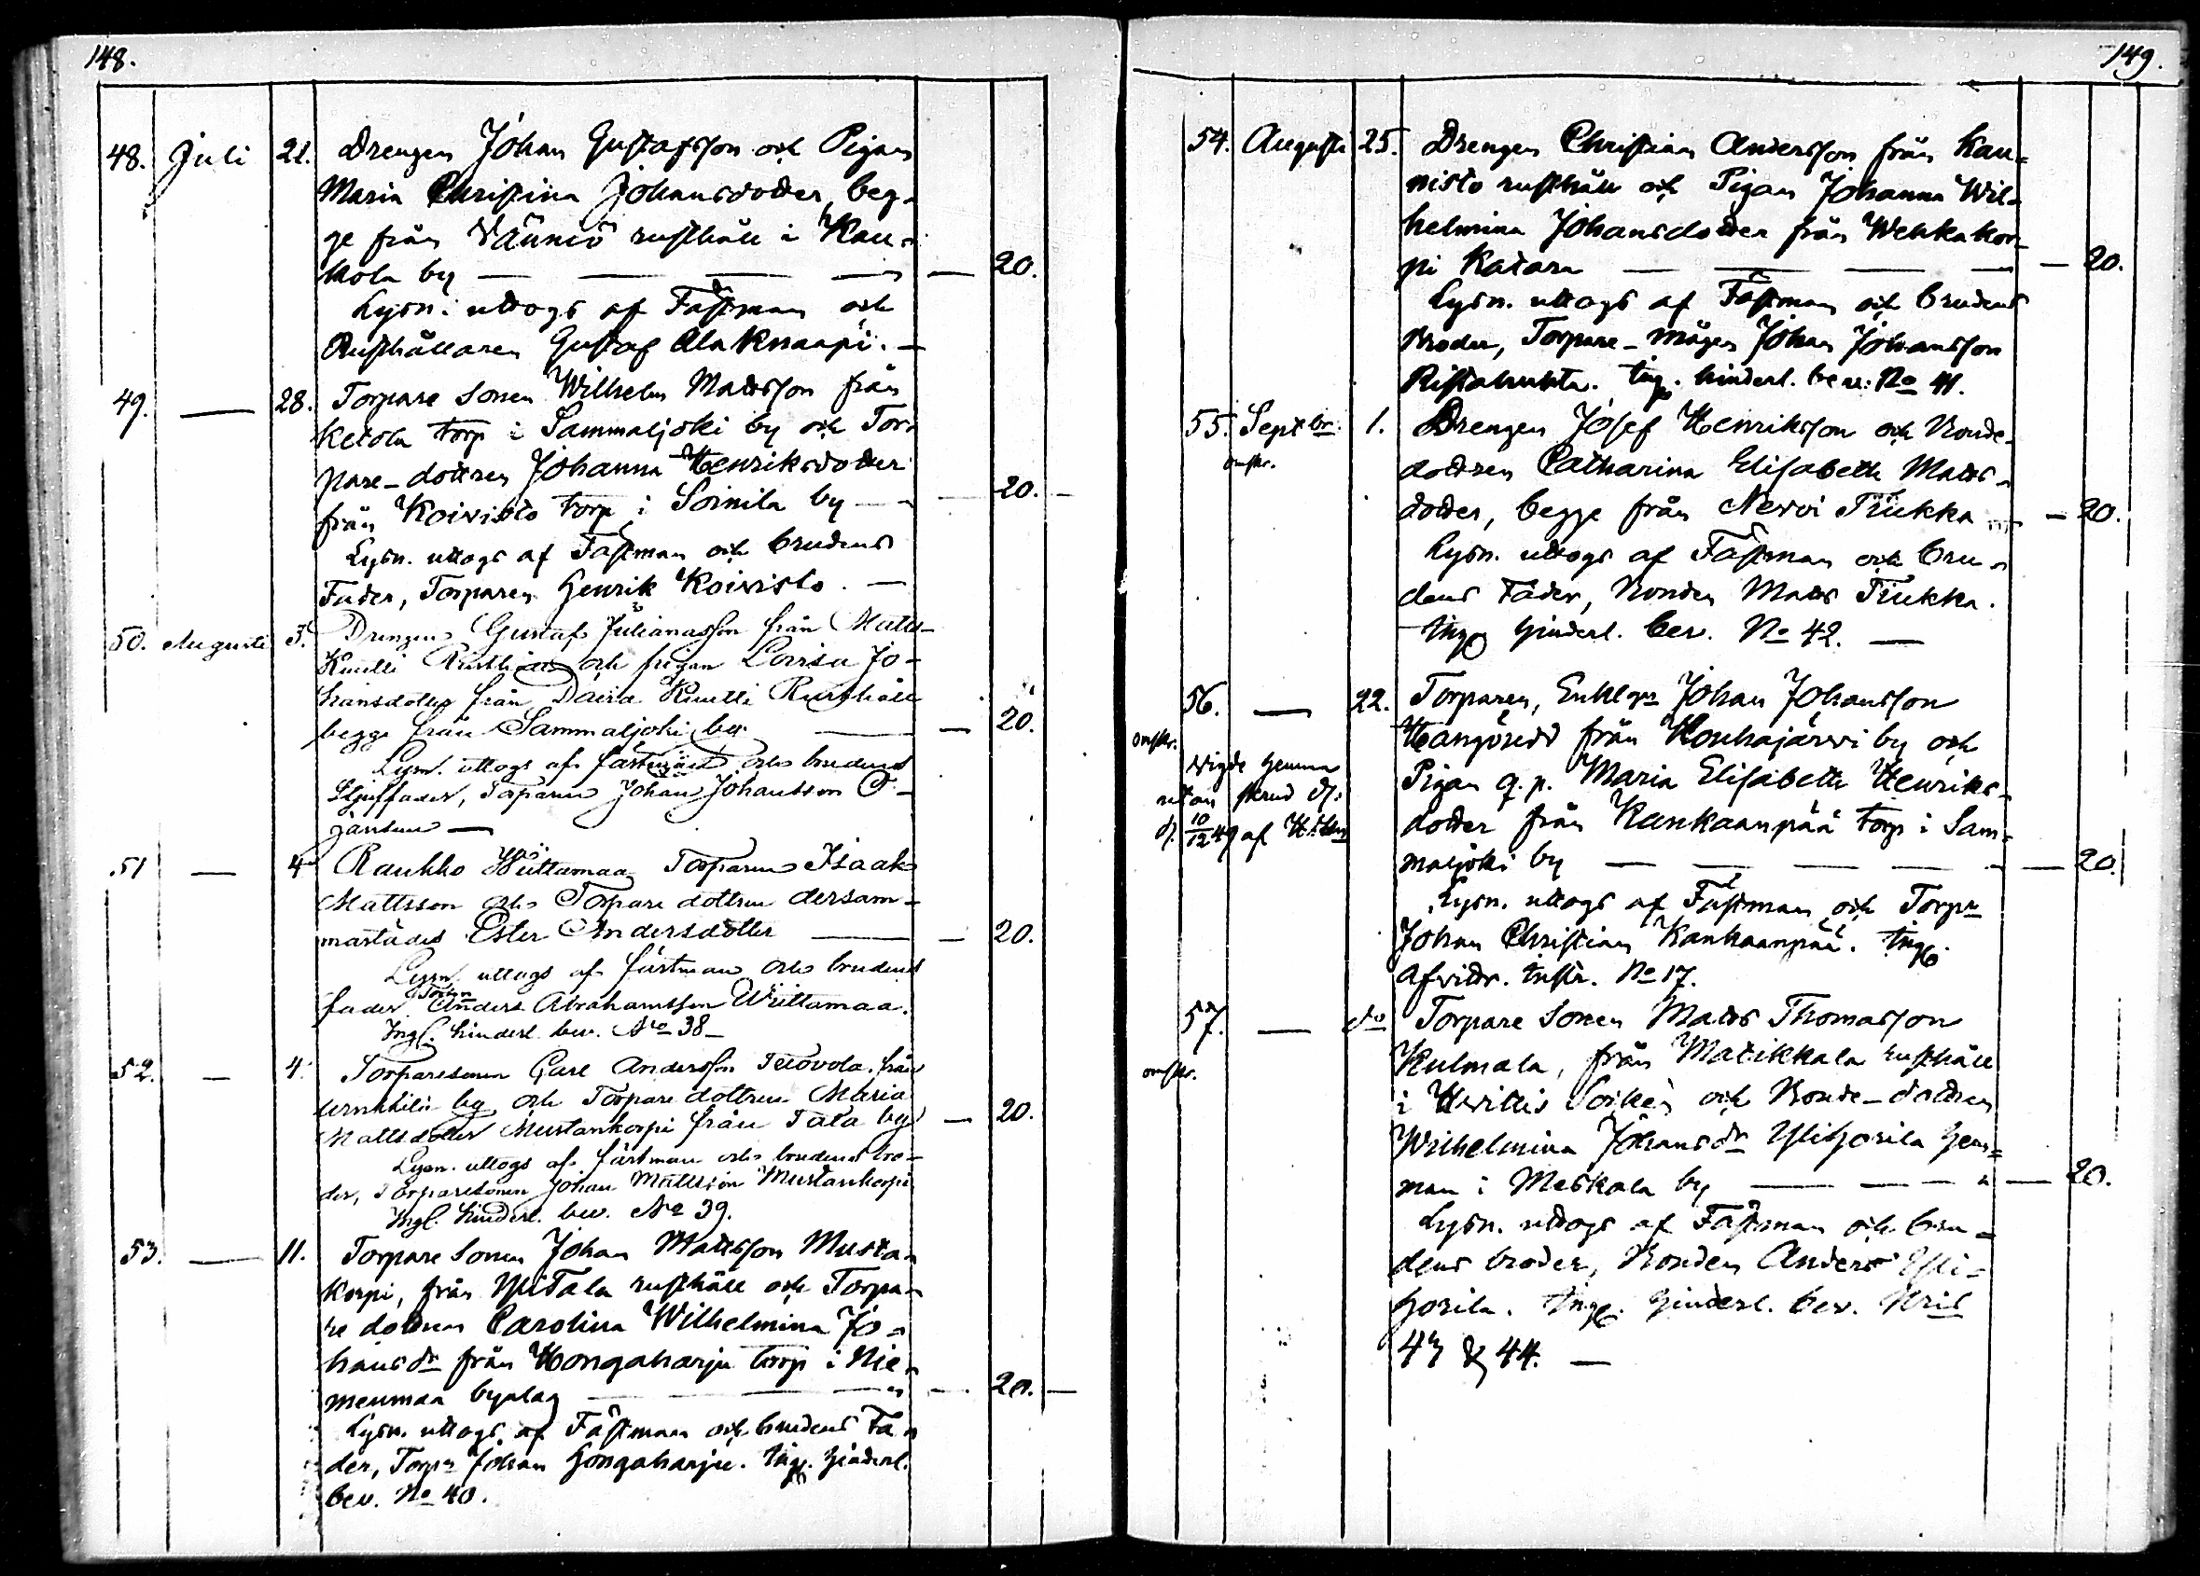 148.
48. Juli 21. Drengen Johan Gustafsson och Pigan
Maria Christina Johansdotter, beg-
ge från Vänniö rusthåll i Kau-
kola by — — — — — 20.
Lysn. uttogs af Fästman och
Rusthållaren Gustaf Ala Knaapi. —
49. — 28. Torpare Sonen Wilhelm Mattsson från
Ketola torp i Sammaljoki by och Tor-
pare-dottren Johanna Henriksdotter
från Koivisto torp i Soinila by — — 20. —
Lysn. uttogs af Fästman och brudens
Fader, Torparen Henrik Koivisto. —
50. Augusti 3. Drengen Gustaf Julianasson från Matts-
Knutti Rusthåll och pigan Lovisa Jo-
hansdotter från David Knutti Rusthåll
begge från Sammaljoki by. — — 20.
Lysn. uttogs af fästman och brudens
Stjuffader, Torparen Johan Johansson O-
jansuu —
51 — 4 Raukko Wiittamaa Torparen Isaak
Mattsson och Torpare dottren dersam-
mastädes Ester Andersdotter — — 20.
Lysn. uttogs af fästman och brudens
fader Torparn Anders Abrahamsson Wiittamaa.
Ingl. hinderl. bev. No 38 —
52. — 4. Torparesonen Carl Andersson från
by och Torpare dottren Maria
Mattsdotter Mustankorpi från Tala by — 20.
Lysn. uttogs af fästman och brudens bro-
der, Torparesonen Johan Mattsson Mustankorpi
Ingl. hinderl. bev. No 39.
53. — 11. Torpare Sonen Johan Mattsson Musta-
korpi, från YliTala rusthåll och Torpa-
re dottren Carolina Wilhelmina Jo-
hansdr från Hongaharju torp i Nie-
menmaa bylag — — — 20. —
Lysn. uttogs af Fästman och brudens Fa-
der, Torpn Johan Hongaharju. Ingl. hinderl.
bev. No 40.
149.
54. Augusti 25. Drengen Christian Andersson från Kau-
nisto rusthåll och Pigan Johanna Wil-
helmina Johansdotter från Wehkakor-
pi Katara — — — — — 20.
Lysn. uttogs af Fästman och brudens
Broder, Torpare-mågen Johan Johansson
Ristahuhta. Ingl. hinderl. bev. No 41.
55. Septbr. 1. Drengen Josef Henriksson och Bonde-
omskr.
dottren Catharina Elisabeth Matts-
dotter, begge från Nervi Tiukka — 20.
Lysn. uttogs af Fästman och bru-
dens Fader, Bonden Matts Tiukka.
Ingl hinderl. bev. No 42. —
56. — 22. Torparen, Enklgn Johan Johansson
omskr.
Hangöudd från Kouhajärvi by och
wigde hemma
Pigan q. p. Maria Elisabeth Henriks-
utan skrud
dotter från Kankaanpää torp i Sam-
d. 10/12 49 af
maljoki by — — — — — 20.
Lysn. uttogs af Fästman och Torpn
Johan Christian Kankaanpää. Ingl.
afvittr. instr. No 17.
57. — do Torpare Sonen Matts Thomasson
Kulmala, från Matikkala rusthåll
omskr.
i Hvittis Socken och Bonde-dottren
Wilhelmina Johansdr YliHorila hem-
man i Meskala by — — — — 20.
Lysn. uttogs af Fästman och bru-
dens broder, Bonden Anders Yli-
Horila. Ingl. hinderl. bev. N:ris
43 & 44. —